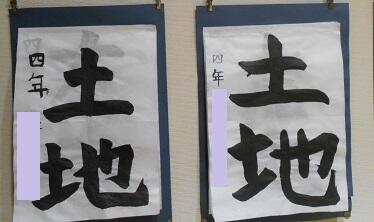 土地
四年
土地
四年